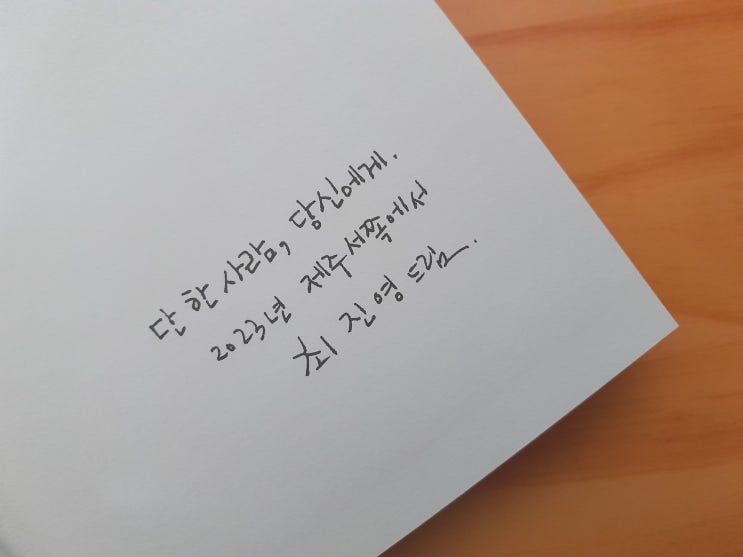 단 한 사람, 당신에게.
2023년 제주 서쪽에서
최진영 드림.